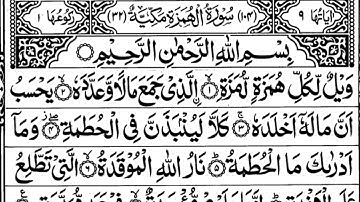 اٰيَاتُهَا ٩ (١٠٤) سُوْرَةُ الْهُمَزَةِ مَكِّيَّةٌ (٣٢) رُكُوْعُهَا ١
بِسْمِ اللّٰهِ الرَّحْمٰنِ الرَّحِيْمِ
وَيْلٌ لِّكُلِّ هُمَزَةٍ لُّمَزَةِ ۙ﴿١﴾ الَّذِيْ جَمَعَ مَالًا وَّعَدَّدَهٗ ۙ﴿٢﴾ يَحْسَبُ
اَنَّ مَالَهٗۤ اَخْلَدَهٗ ۚ﴿٣﴾ كَلَّا لَيُنْۢبَذَنَّ فِي الْحُطَمَةِ ۖ﴿٤﴾ وَمَاۤ
اَدْرٰىكَ مَا الْحُطَمَةُ ؕ﴿٥﴾ نَارُ اللّٰهِ الْمُوْقَدَةُ ۙ﴿٦﴾ الَّتِيْ تَطَّلِعُ